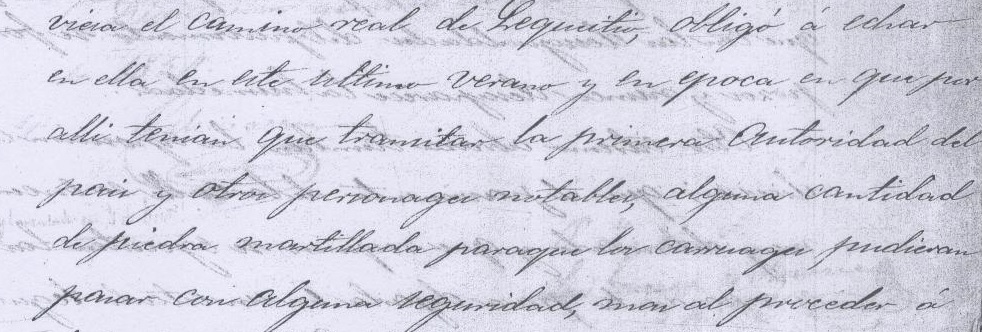 viera el camino real de Lequeitio, obligó á echar
en ella en este ultimo verano y en epoca en que por
alli tenian que transitar la primera Autoridad del
pais y otros personages notables, alguna cantidad
de piedra martillada paraque los carruages pudieran
pasar con alguna seguridad, mas al proceder á